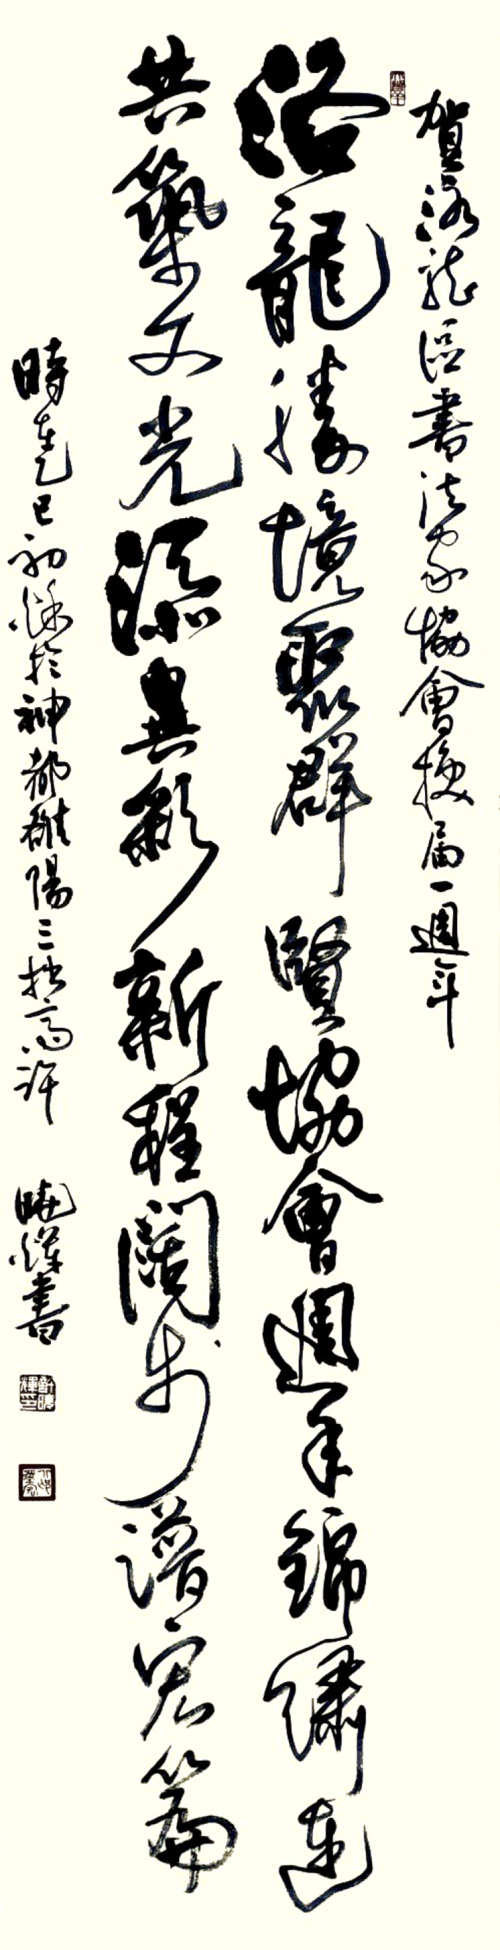 賀洛龍區書法家協會換屆一週年
洛龍勝境聚群賢協會週年錦繡連
共築文光添異彩新程闊步譜宏篇
時在乙巳初秋於神都雒陽三拙齋許
曉輝書